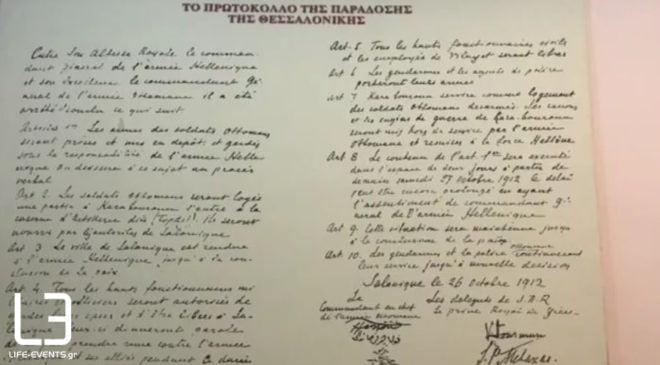 ΤΟ ΠΡΩΤΟΚΟΛΛΟ ΤΗΣ ΠΑΡΑΔΟΣΗΣ
ΤΗΣ ΘΕΣΣΑΛΟΝΙΚΗΣ
Entre Son Altesse Royale le comman-
dant général de l'armée Hellenique
et son Excellence le commandant gé-
neral de l'armée Ottomane il a été
arrêté conclu ce qui suit
Article 1er Les armes des soldats Ottomans
seront prises et mis en depôt et gardés
sous la responsabilité de l'armée Helle-
nique On dressera à ce sujet un procès
verbal
Art 2. Les soldats ottomans seront logés
une partie à Karabouroun l'autre à la
caserne d'artillerie dite (Topdji). Ils seront
nourris par Salonique
Art 3 La ville de Salonique est rendue
à l'armée Hellenique jusqu'à la con-
clusion de la paix
Art 4. Tous les hauts fonctionnaires mi
et officiers seront autorisés de
et d'être libres à Sa-
donneront parole de
prendre contre l'armée
et ses alliés pendant la durée
Art 5 Tous les hauts fonctionnaires civils
et les employés de Vilayet seront libres
Art 6 Les gendarmes et les agents de police
porteront leurs armes
Art 7 Kara bouroun servira comme logement
des soldats Ottomans desarmés. Les canons
et les engins de guerre de Kara-bouroun
seront mis hors de service par l'armée
Ottomane et remises à la force Hellène
Art 8 Le contenu de l'art 1er sera executé
dans l'espace de deux jours à partir de
demain samedi 27 octobre 1912 le délai
peut être encore prolongé en ayant
l'assentiment de commandant gé-
néral de l'armée Hellenique
Art 9 Cette situation sera maintenue jusqu'
à la conclusion de la paix
Art 10. Les gendarmes et la police ottomane continueront
leur service jusqu'à nouvelle décision
Salonique le 26 octobre 1912
Le Commandant en chef
de l'armée ottomane
Les delegués de S.A.R
Le prince Royal de Grèce
L3
LIFE-EVENTS.gr